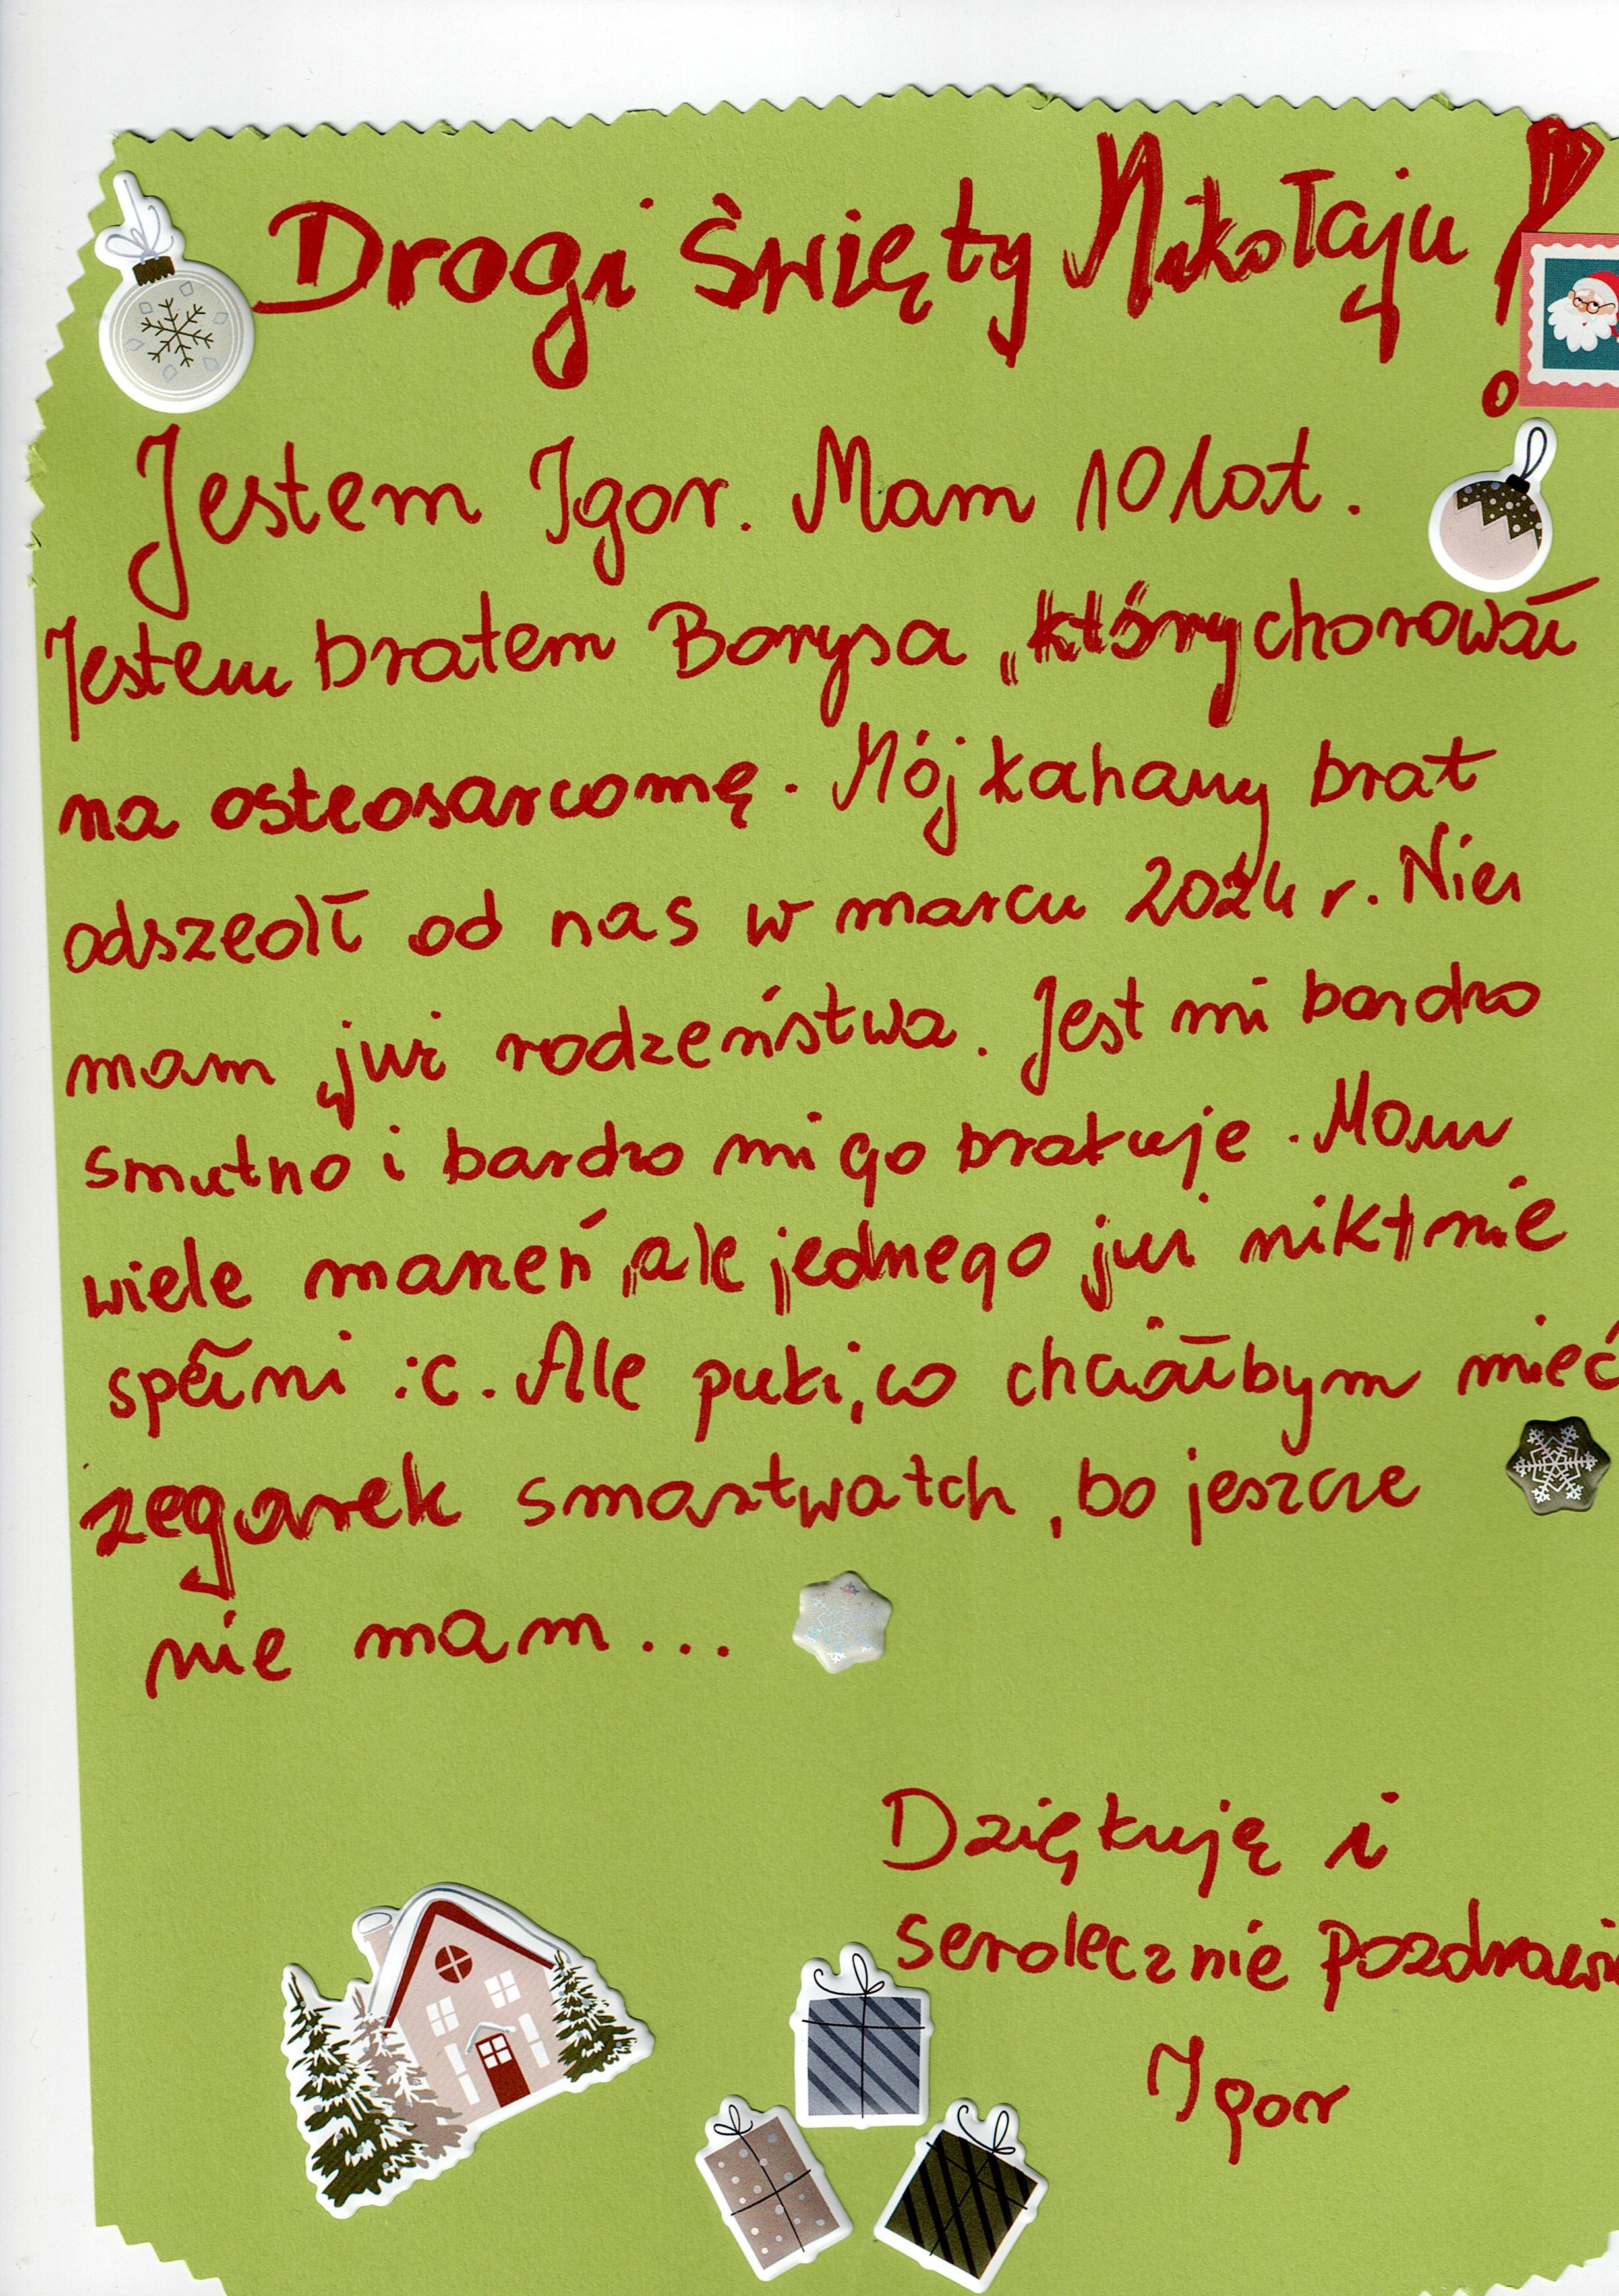 Drogi Święty Mikołaju!
Jestem Igor. Mam 10 lat.
Jestem bratem Borysa, który chorował
na osteosarcomę. Mój kahany brat
odszedł od nas w marcu 2024 r. Nie
mam już rodzeństwa. Jest mi bardzo
smutno i bardzo mi go brakuje. Mam
wiele marzeń, ale jednego już nikt nie
spełni :c. Ale puki, co chciałbym mieć
zegarek smartwatch, bo jeszcze
nie mam...
Dziękuję i
serdecznie pozdrawi
Igor